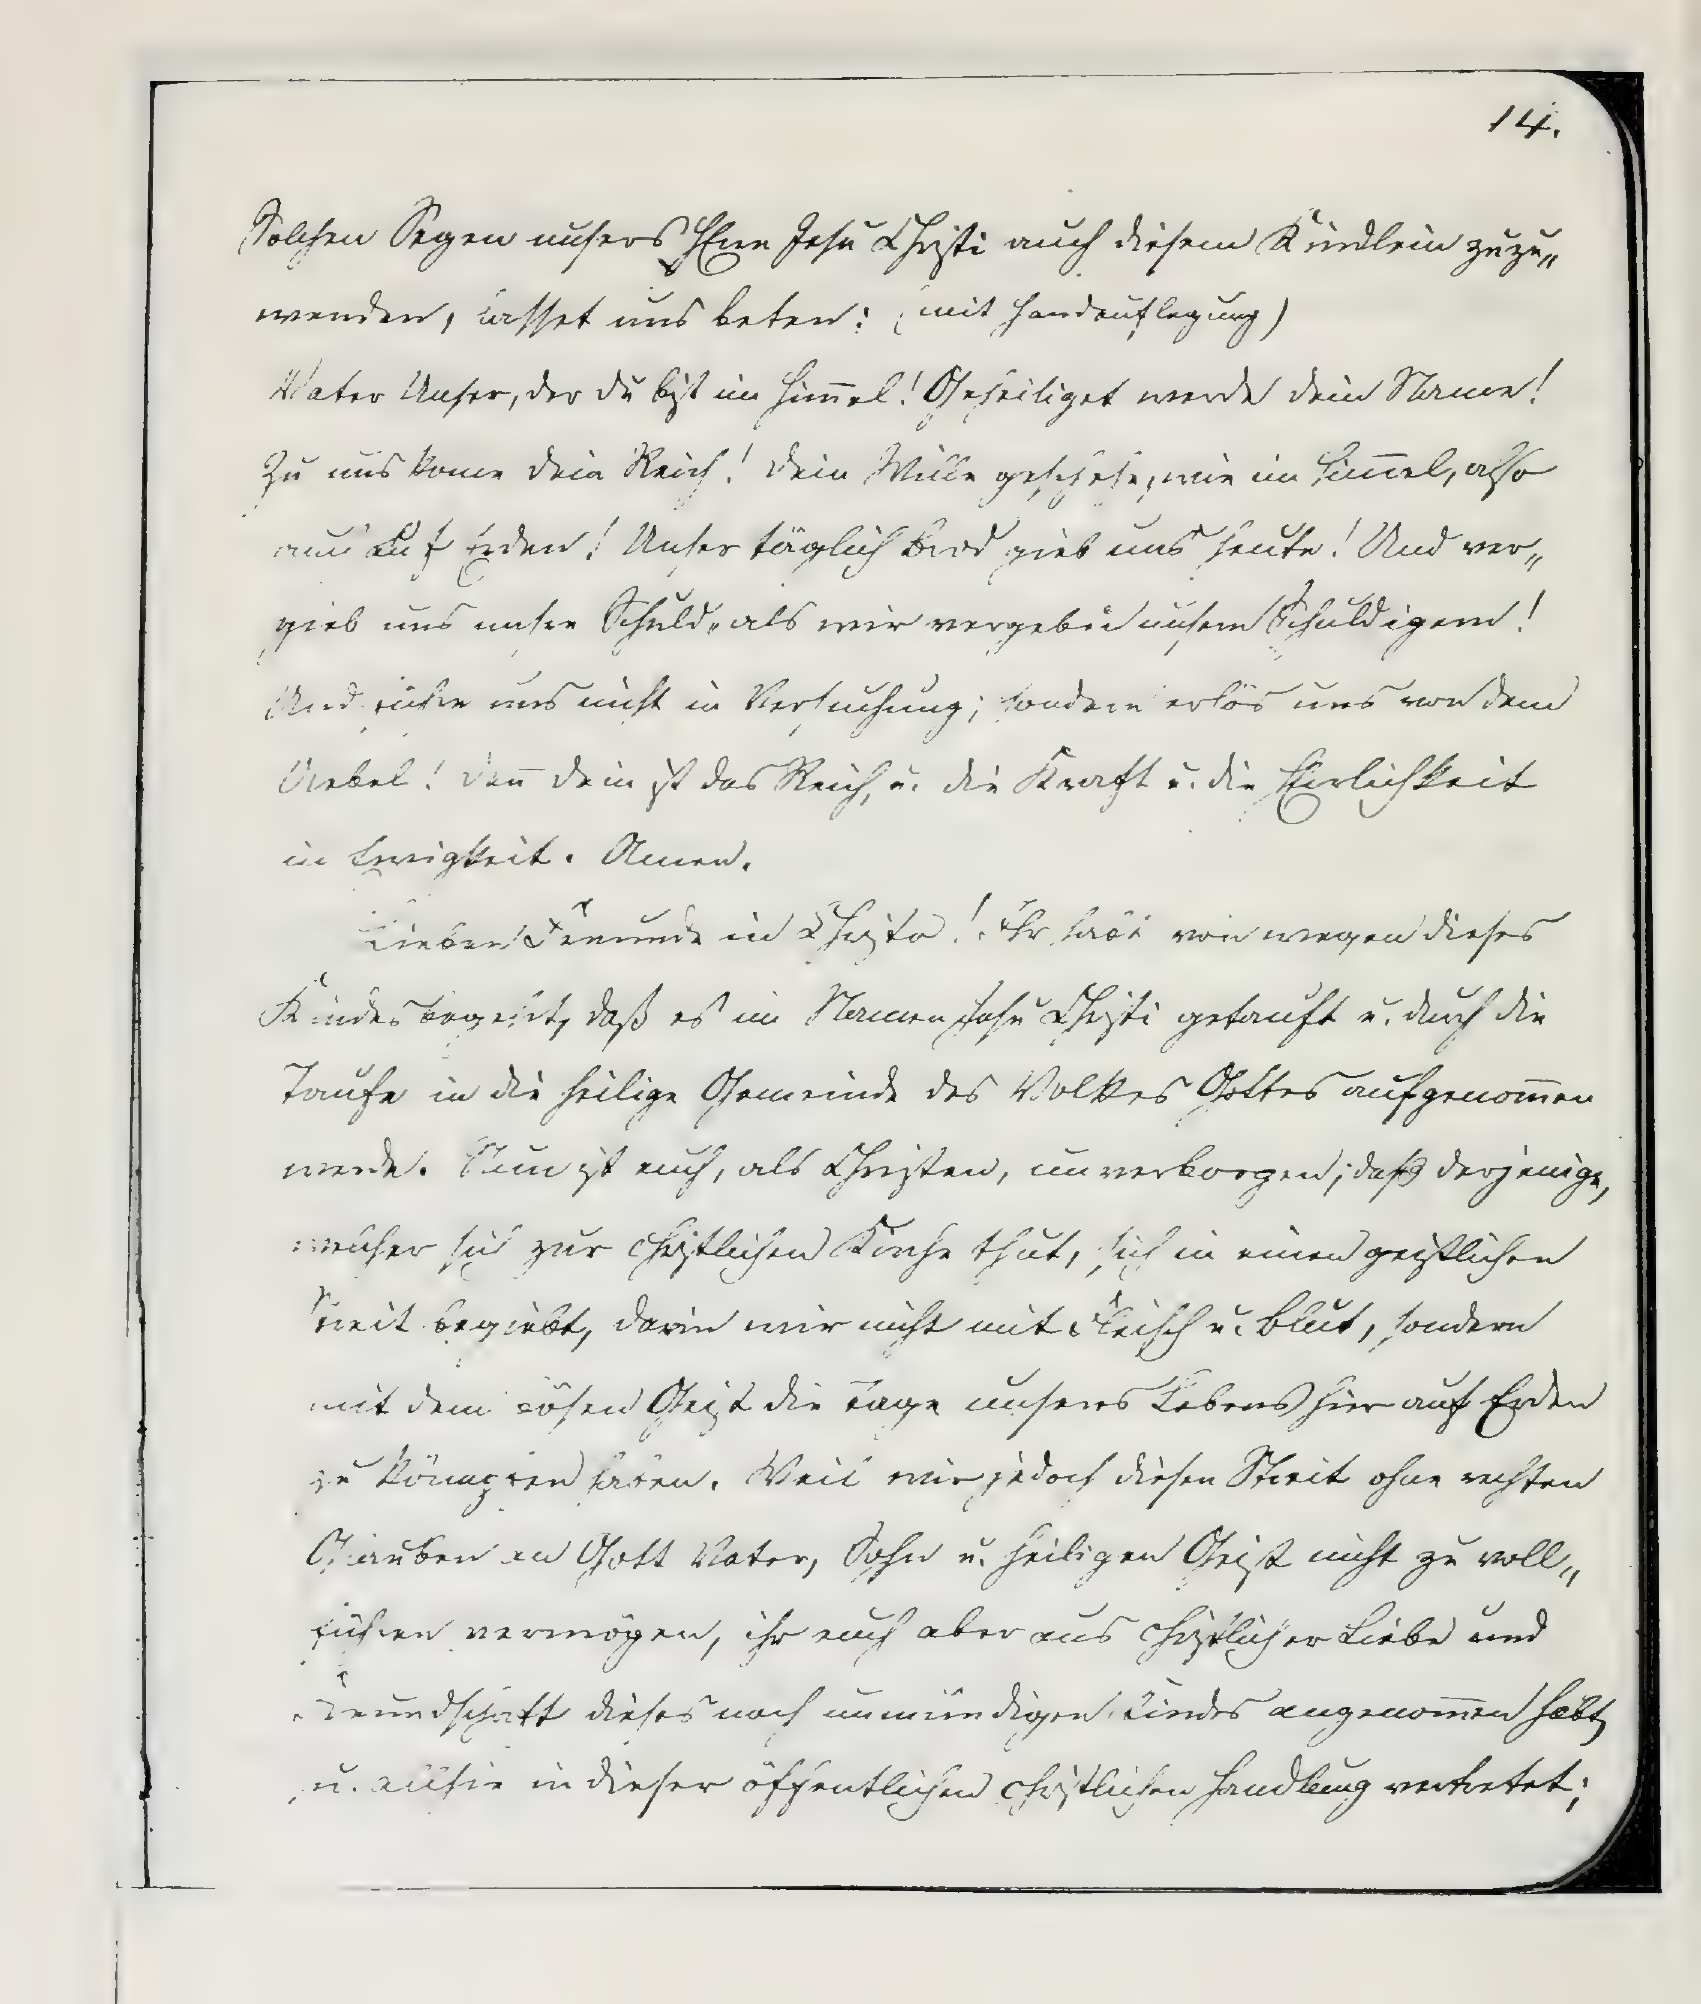 14.
Solchen Segen unsers HErrn Jesu Christi auch diesem Kindlein zuzu„
wenden, lasset uns beten: (mit Handauflegung)
Vater Unser, der du bist im Him̅el! Geheiliget werde dein Name!
Zu uns kom̅e dein Reich! Dein Wille geschehe, wie im Him̅el, also
auch auf Erden! Unser täglich Brod gieb uns heute! Und ver„
gieb uns unsre Schuld, als wir vergeben unsern Schuldigern!
Und führe uns nicht in Versuchung; sondern erlös uns von dem
Uebel! Den̅ dein ist das Reich, u. die Kraft u. die HErrlichkeit
in Ewigkeit. Amen.
Lieben Freunde in Christo! Ihr habt von wegen dieses
Kindes begehrt, daß es im Namen Jesu Christi getauft u. durch die
Taufe in die heilige Gemeinde des Volkes Gottes aufgenom̅en
werde. Nun ist euch, als Christen, unverborgen; daß derjenige,
welcher sich zur christlichen Kirche thut, sich in einen geistlichen
Streit begiebt, darin wir nicht mit Fleisch u. Blut, sondern
mit dem bösen Geist die Tage unsers Lebens hier auf Erden
zu kämpfen haben. Weil wir jedoch diesen Streit ohne rechten
Glauben an Gott Vater, Sohn u. heiligen Geist nicht zu voll„
führen vermögen, ihr euch aber aus christlicher Liebe und
Freundschaft dieses noch unmündigen Kindes angenom̅en habt,
u. in dieser öffentlichen christlichen Handlung vertretet;